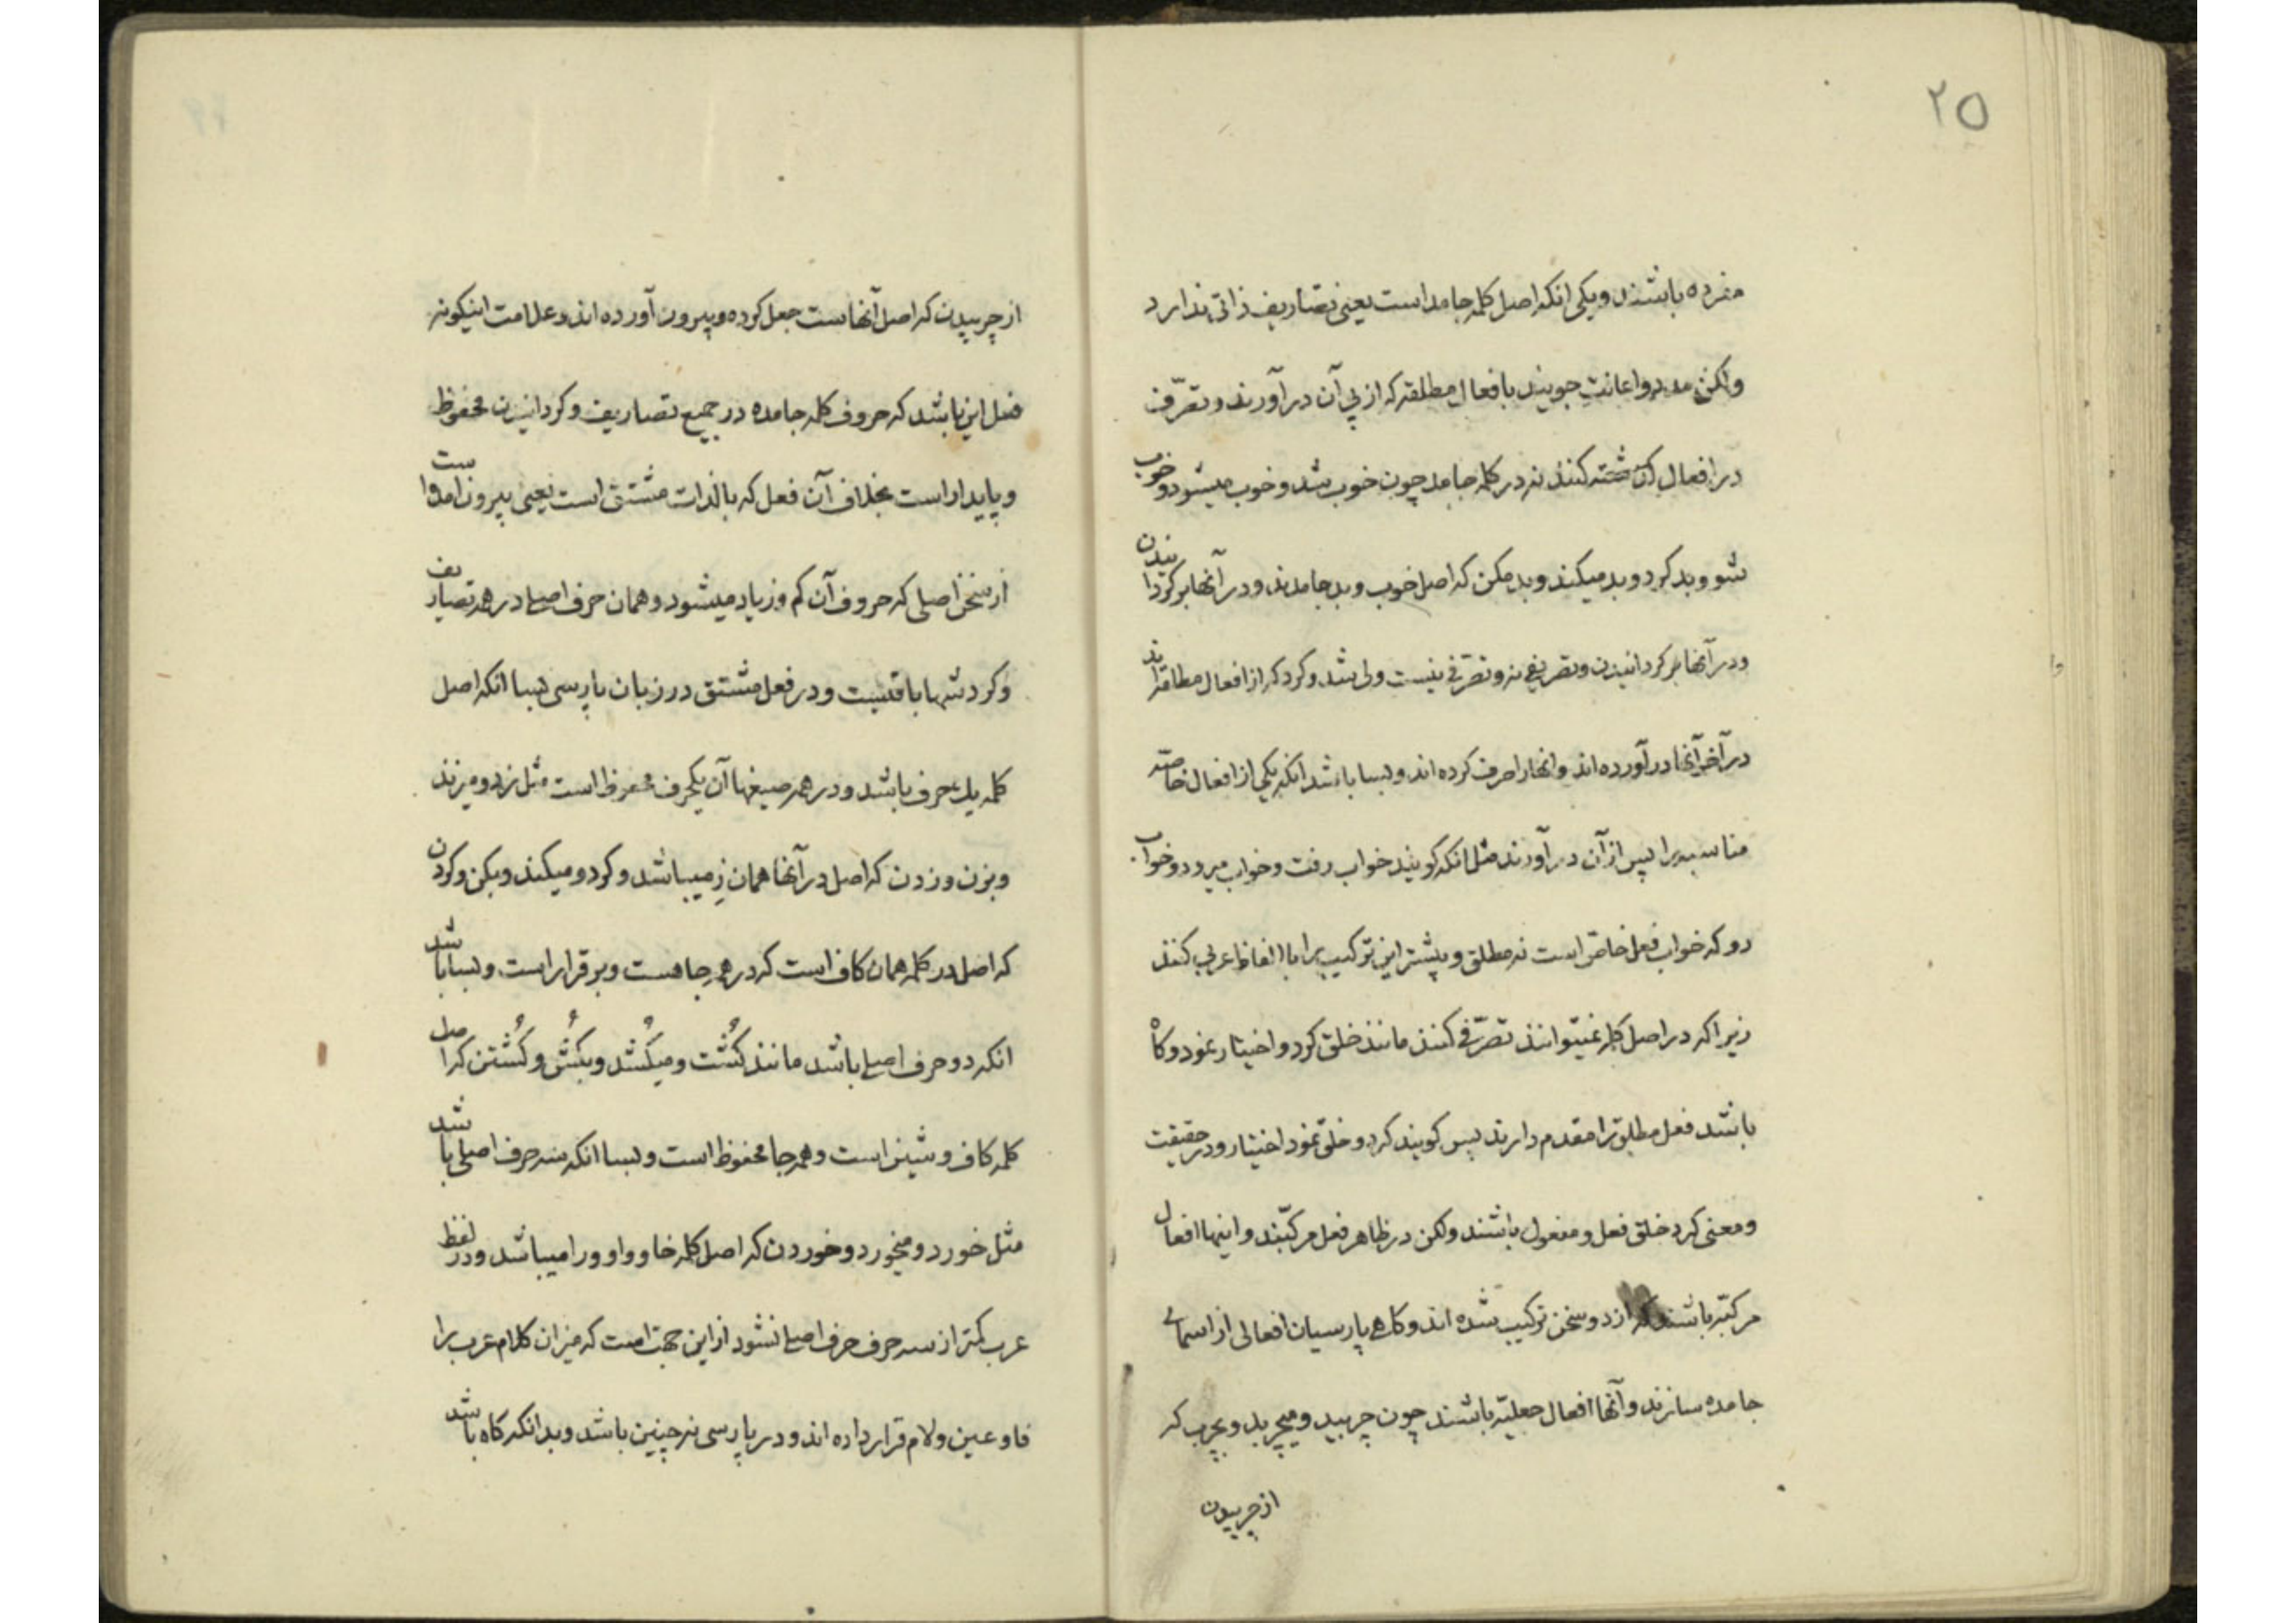 ۲۵
مفرده باشند و یکی انکه اصل کلمه جامد است یعنی تصاریف ذاتی ندارد
ولکن مدد و اعانت جویند بافعال مطلقه که از پی آن در آورند و تصرّف
در افعال کنند نه در کلمه جامد چون خوب شد و خوب میشود و خوب
شو و بد کرد و بد میکند و بد مکن که اصل خوب و بد جامدند و در آنها برکردانیدن
و در آنها برکردانیدن و تصریفی نه و تصرّفی نیست ولی شد و کرد که از افعال مطلقه‌اند
در آخر آنها در آورده اند و انها را صرف کرده اند و بسا باشد انکه یکی از افعال خاصّه
مناسبه را پس از آن در آورند مثلا انکه کویند خواب رفت و خواب میرود و خواب
رو که خواب فعل خاصّ است نه مطلق و بیشتر این ترکیب را با الفاظ عربی کنند
زیرا که در اصل کلمه نمیتوانند تصرّفی کنند مانند خلق کرد و اختیار نمود و کاه
باشد فعل مطلق را مقدم دارند پس کویند کرد خلق و نمود اختیار و در حقیقت
و معنی کرد خلق فعل و مفعول باشند ولکن در ظاهر فعل مرکبّند و اینها افعال
مرکبّه باشند که از دو سخن ترکیب شده اند و کاهی پارسیان افعالی از اسمای
جامده سازند و آنها افعال جعلیّه باشند چون چربید و میچربد و بچرب که
از چربیدن
از چربیدن که اصل آنهاست جعل کرده و بیرون آورده اند و علامت اینکونه
فعل این باشد که حروف کلمه جامده در جمیع تصاریف و کردانیدن محفوظ
و پایدار است بخلاف آن فعل که بالذات مشتق است یعنی بیرون امده است
از سخن اصلی که حروف آن کم و زیاد میشود و همان حرف اصلی در همه تصاریف
و کردشها باقیست و در فعل مشتق در زبان پارسی بسا انکه اصل
کلمه یک حرف باشد و در همه صیغها آن یکحرف محفوظ است مثل زد و میزند
و بزن و زدن که اصل در آنها همان زِ میباشد و کرد و میکند و بکن و کردن
که اصل در کلمه همان کاف است که در همه جا هست و برقرار است و بسا باشد
انکه دو حرف اصلی باشد مانند کُشت و میکُشد و بکُش و کُشتن که اصل
کلمه کاف و شین است و همه جا محفوظ است و بسا انکه سه حرف اصلی باشد
مثل خورد و میخورد و خوردن که اصل کلمه خا و واو و را میباشد و در لفظ
عرب کمتر از سه حرف حرف اصلی نشود از این جهت است که میزان کلام عرب را
فا و عین و لام قرار داده اند و در پارسی نه چنین باشد و بدانکه کاه باشد